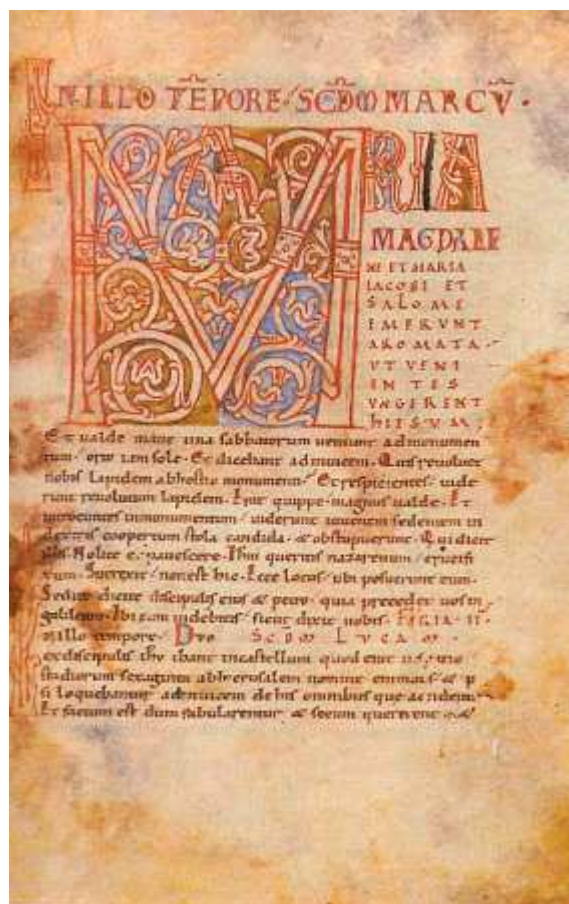 IN ILLO TEPORE SCDM MARCV
MARIA
MAGDALE
NE ET MARIA
IACOBI ET
SALOME
EMERVNT
AROMATA
VT VENI
ENTES
VNGERENT
HIESVM
Et ualde mane una sabbatorum ueniunt ad monumen
tum orto iam sole. Et dicebant adinuicem. Quis reuoluet
nobis lapidem abhostio monumenti. Et respicientes uide
runt reuolutum lapidem. Erat quippe magnus ualde. Et
introeuntes inmonumentum uiderunt iuuenem sedentem in
dextris coopertum stola candida & obstupuerunt. Qui dicit
illis Nolite expauescere. Ihm queritis nazarenum crucifi
xum. Surrexit non est hic. Ecce locus ubi posuerunt eum.
Sed ite dicite discipulis eius & petro quia precedet uos in
galileam. Ibi eum uidebitis sicut dixit uobis. FERIA II
n illo tempore. Duo SCDM LVCAM
ex discipulis ibant incastellum quod erat
stadiorum sexaginta abhierusalem nomine emmaus & ip
si loquebantur adinuicem de his omnibus que acciderant.
Et factum est dum fabularentur & secum quererent